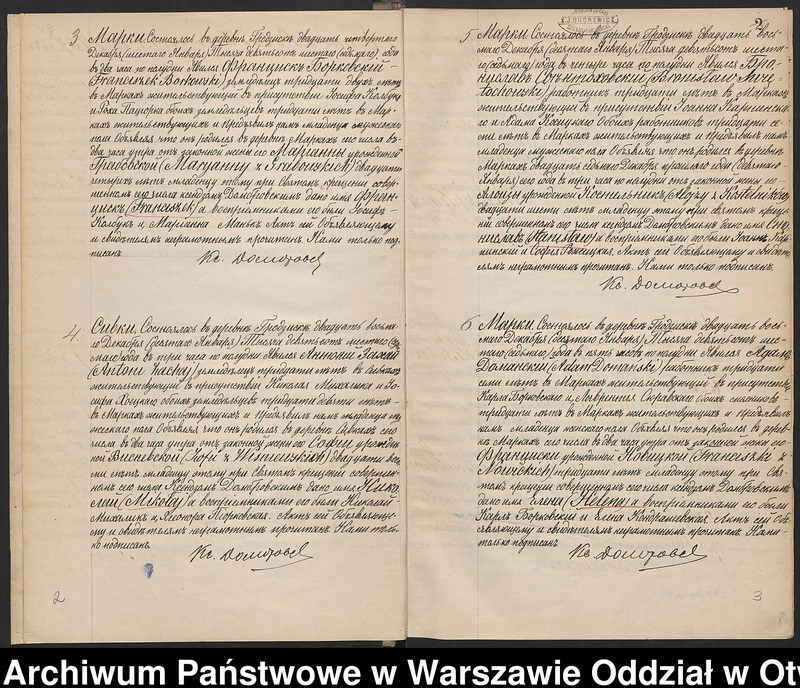 3 Марки. Состоялось въ деревнѣ Гродзискъ двадцать четвертаго
Декабря (шестаго Января) Тысяча девятьсотъ шестаго (седьмаго) года
въ два часа по полудни Явился Францискъ Борковскій
(Franciszek Borkowski) земледѣлецъ тридцати двухъ лѣтъ
въ Маркахъ жительствующій въ присутствіи Іосифа Колбукъ
и Роха Пацёрка обоихъ земледѣльцевъ тридцати лѣтъ въ Мар-
кахъ жительствующихъ и предъявилъ намъ младенца мужескаго
пола Объявляя что онъ родился въ деревнѣ Маркахъ сего числа въ
два часа утра отъ законной жены его Маріанны урожденной
Грабовской (Maryanny z Grabowskich) двадцати
четырехъ лѣтъ младенцу этому при Святомъ крещеніи совер-
шенномъ сего числа Ксендзомъ Домбровскимъ дано имя Фран-
цискъ (Franciszek) а воспріемниками его были Іосифъ
Колбукъ и Маріанна Манькъ Актъ сей Объявляющему
и свидѣтелямъ неграмотнымъ прочитанъ. Нами только под-
писанъ.
Кс. Домбровс
4. Сивки. Состоялось въ деревнѣ Гродзискъ двадцать восьма-
го Декабря (десятаго Января) Тысяча девятьсотъ шестаго (се
маго) года въ три часа по полудни Явился Антоній
(Antoni) земледѣлецъ тридцати лѣтъ въ Сивкахъ
жительствующій въ присутствіи Николая Михалика и Іо-
сифа Хоецкаго обоихъ земледѣльцевъ тридцати девяти лѣтъ
въ Маркахъ жительствующихъ и предъявилъ намъ младенца му-
жескаго пола Объявляя что онъ родился въ деревнѣ Сивкахъ сего
числа въ два часа утра отъ законной жены его Софіи урожден
ной Висневской (Zofii z Wiśniewskich) двадцати вось
ми лѣтъ младенцу этому при Святомъ крещеніи совершен-
номъ сего числа Ксендзомъ Домбровскимъ дано имя Нико-
лай (Mikołaj) а воспріемниками его были Николай
Михаликъ и Леонора Піорковская. Актъ сей Объявляюще-
му и свидѣтелямъ неграмотнымъ прочитанъ Нами толь-
ко подписанъ.
Кс. Домбровс
2
2
5 Марки. Состоялось въ деревнѣ Гродзискъ двадцать вось-
маго Декабря (десятаго Января) Тысяча девятьсотъ шеста-
го (седьмаго) года въ четыре часа по полудни Явился Бро-
ниславъ (Bronisław
) работникъ тридцати лѣтъ въ Маркахъ
жительствующій въ присутствіи Іоанна Карпинска-
го и Адама Обоихъ работниковъ тридцати се-
ми лѣтъ въ Маркахъ жительствующихъ и предъявилъ намъ
младенца мужескаго пола Объявляя что онъ родился въ деревнѣ
Маркахъ двадцать седьмаго Декабря прошлаго года (девятаго
Января) сего года въ три часа по полудни отъ законной жены его
Алоизы урожденной Костельникъ (Alojzy z Kostelników)
двадцати шести лѣтъ младенцу этому при святомъ креще
ніи совершенномъ сего числа ксендзомъ Домбровскимъ дано имя Ста-
ниславъ (Stanisław) а воспріемниками его были Іоаннъ Кар-
пинскій и Софія Актъ сей Объявляющему и свидѣте-
лямъ неграмотнымъ прочитанъ. Нами только подписанъ.
Кс. Домбровс
6 Марки. Состоялось въ деревнѣ Гродзискъ двадцать вось-
маго Декабря (десятаго Января) Тысяча девятьсотъ шес-
таго (седьмаго) года въ пять часовъ по полудни Явился Адамъ
Доманскій (Adam Domański) работникъ тридцати
семи лѣтъ въ Маркахъ жительствующій въ присутствіи
Карла Борковскаго и Лаврентія Сюравскаго обоихъ
тридцати лѣтъ въ Маркахъ жительствующихъ и предъявилъ
намъ младенца женскаго пола Объявляя что онъ родился въ дерев-
нѣ Маркахъ сего числа въ два часа утра отъ законной жены его
Франциски урожденной Новицкой (Franciszki z
Nowickich) тридцати лѣтъ младенцу этому при Свя-
томъ крещеніи совершенномъ сего числа ксендзомъ Домбровскимъ
дано имя Елена (Helena) а воспріемниками его были
Карлъ Борковскій и Елена Кондрашевская Актъ сей Объ-
являющему и свидѣтелямъ неграмотнымъ прочитанъ. Нами
только подписанъ
Кс. Домбровс
3
Archiwum Państwowe w Warszawie Oddział w Otw